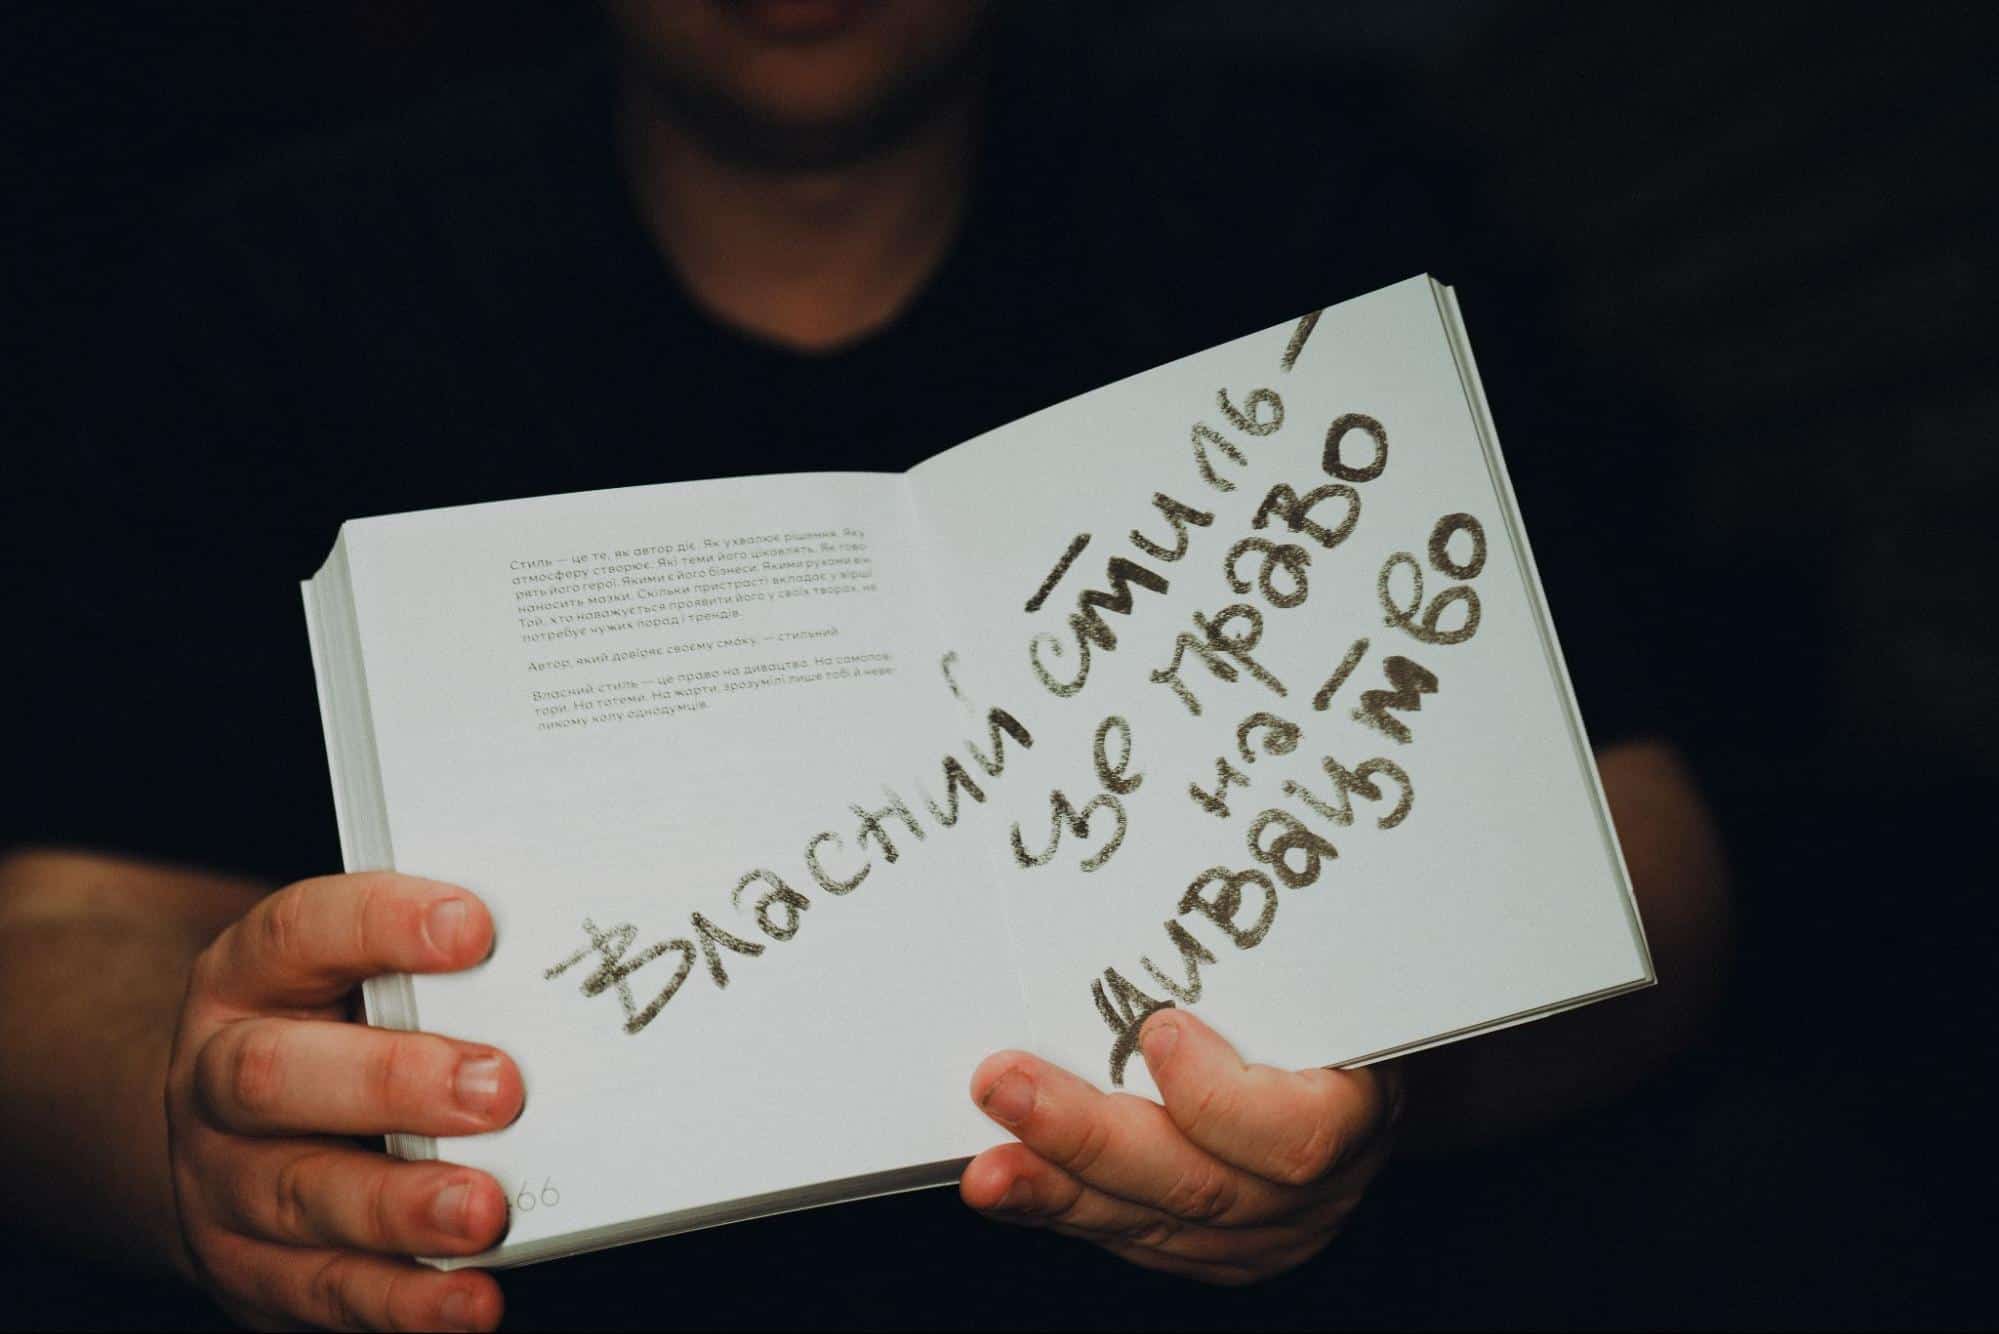 Стиль — це те, як автор діє. Як ухвалює рішення. Яку
атмосферу створює. Які теми його цікавлять. Як гово-
рять його герої. Якими є його бізнеси. Якими рухами він
наносить мазки. Скільки пристрасті вкладає у вірші.
Той, хто наважується проявити його у своїх творах, не
потребує чужих порад і трендів.
Автор, який довіряє своєму смаку, — стильний.
Власний стиль — це право на дивацтво. На самопов-
тори. На тотеми. На жарти, зрозумілі лише тобі й неве-
ликому колу однодумців.
Власний стиль —
це право
на
дивацтво
66